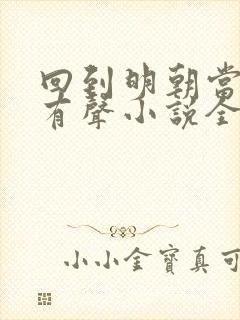 回到明朝當
有聲小說全
小小金寶真可